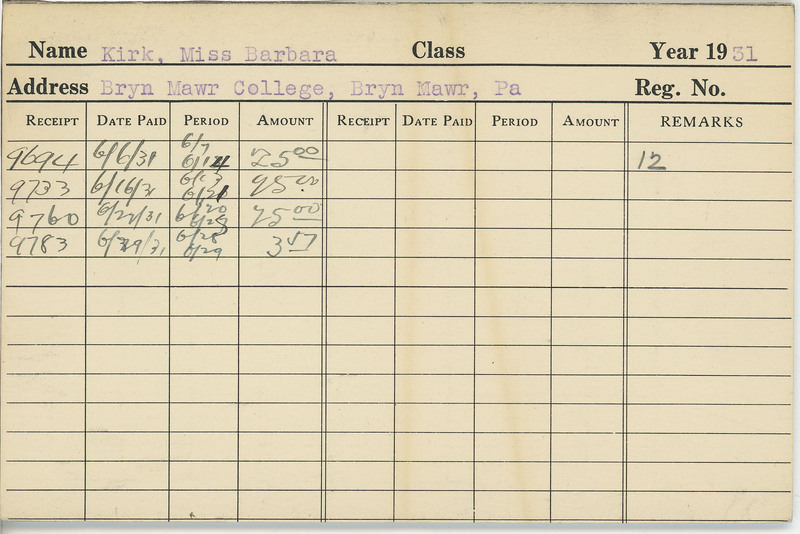 Name Kirk, Miss Barbara Class Year 1931
Address Bryn Mawr College, Bryn Mawr, Pa Reg. No.
RECEIPT DATE PAID PERIOD AMOUNT RECEIPT DATE PAID PERIOD AMOUNT REMARKS
6/7
9694 6/6/31 6/14 25 00 12
6/13
9733 6/16/31 6/21 25.00
6/20
9760 6/22/31 6/28 25 00
6/28
9783 6/29/31 6/29 3 57